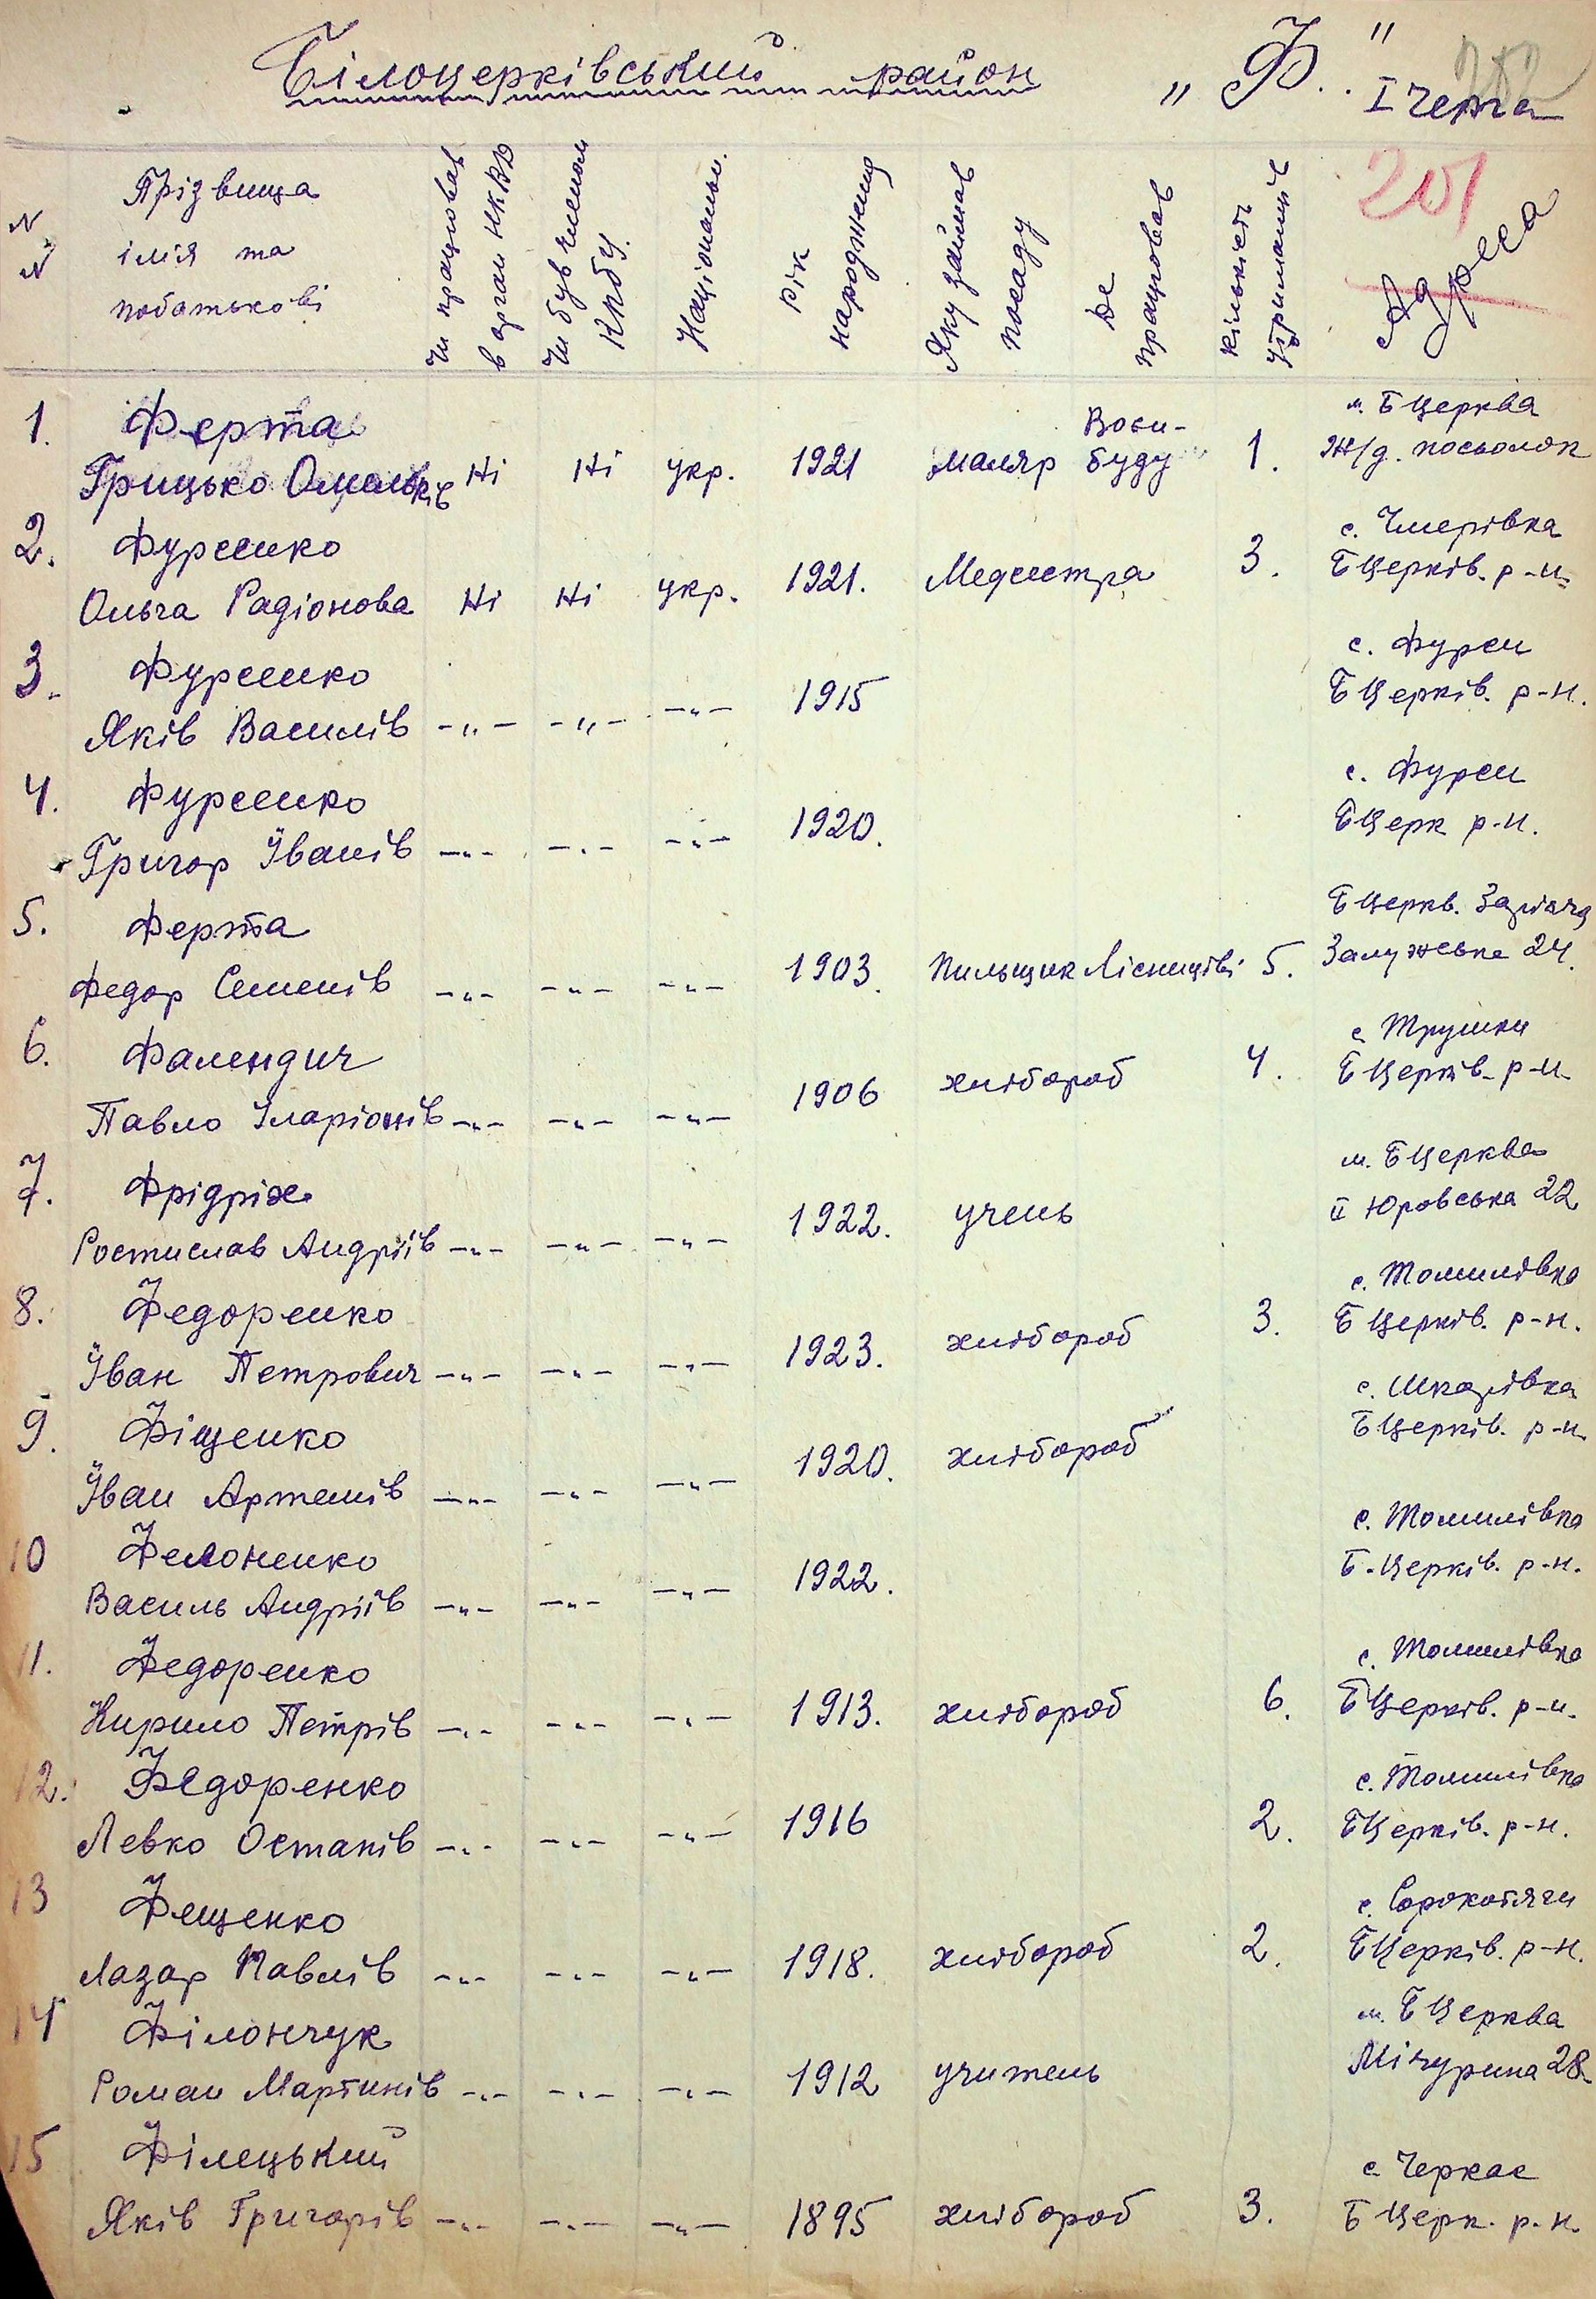 Білоцерківський район „Ф.."
202
І черга
201
№№
Прізвища
ім'я та
побатькові
Чи працював
в орган НКВД
Чи був членом
КПбУ.
Національн.
Рік
народження
Яку займав
посаду
Де
працював
кількість
утриманців
Адреса
м. БЦерква
1. Ферта Воєн-
Грицько Омельків Ні Ні укр. 1921 маляр буду 1. Ж/д. посьолок
2. Фурсенко с. Чмерівка
Ольга Радіонова Ні Ні укр. 1921. Медсестра 3. БЦерків. р-н.
3. Фурсенко с. Фурси
Яків Василів -„- -„- -„- 1915 БЦерків. р-н.
4. Фурсенко с. Фурси
Григор Іванів -„- -„- -„- 1920. БЦерк р-н.
5. Ферта БЦеркв. Заріччя
Федор Семенів -„- -„- -„- 1903. Пильщик Лісництві 5. Залужська 24.
6. Фалендич с. Трушки
Павло Іларіонів -„- -„- -„- 1906 хлібороб 4. БЦерків. р-н.
7. Фрідріх м. БЦерква
Ростислав Андріїв -„- -„- -„- 1922. учень ІІ Юровська 22
8. Федоренко с. Томилівка
Іван Петрович -„- -„- -„- 1923. хлібороб 3. БЦерків. р-н.
9. Фіщенко с. Шкарівка
Іван Артемів -„- -„- -„- 1920. хлібороб БЦерків. р-н.
10 Фелоненко с. Томилівка
Василь Андріїв -„- -„- -„- 1922. Б.Церків. р-н.
11. Федоренко с. Томилівка
Кирило Петрів -„- -„- -„- 1913. хлібороб 6. БЦерків. р-н.
12. Федоренко с. Томилівка
Левко Остапів -„- -„- -„- 1916 2. БЦерків. р-н.
13 Фещенко с. Сорокотяги
Лазар Павлів -„- -„- -„- 1918. хлібороб 2. БЦерків. р-н.
14 Філончук м. БЦерква
Роман Мартинів -„- -„- -„- 1912 учитель Мічурина 28.
15 Філецький с. Черкас
Яків Григорів -„- -„- -„- 1895 хлібороб 3. БЦерк. р.н.